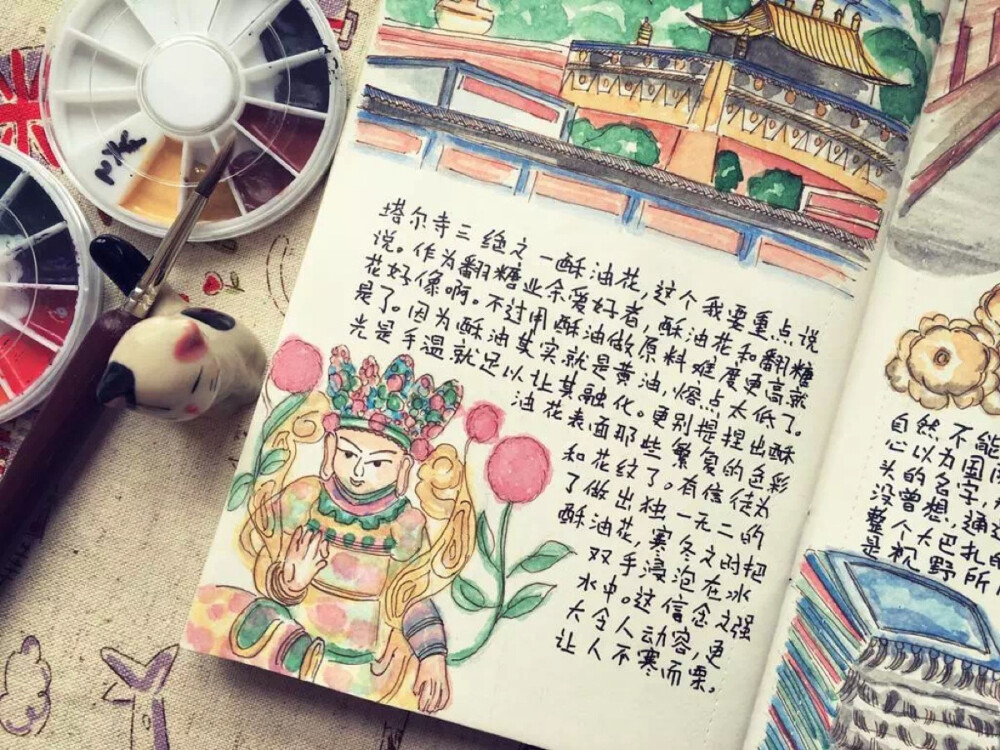 塔尔寺三绝之一酥油花，这个我要重点说
说。作为翻糖业余爱好者，酥油花和翻糖
花好像啊。不过用酥油做原料难度更高就
是了。因为酥油其实就是黄油，熔点太低了。
光是手温就足以让其融化。更别提捏出酥
油花表面那些繁复的色彩
和花纹了。有信徒为
了做出独一无二的
酥油花，寒冬之时把
双手浸泡在冰
水中。这信念之强
大令人动容，更
让人不寒而栗。
自然不能
心以为国
头的名字，
没曾想，通
整个大巴扎
是视野所